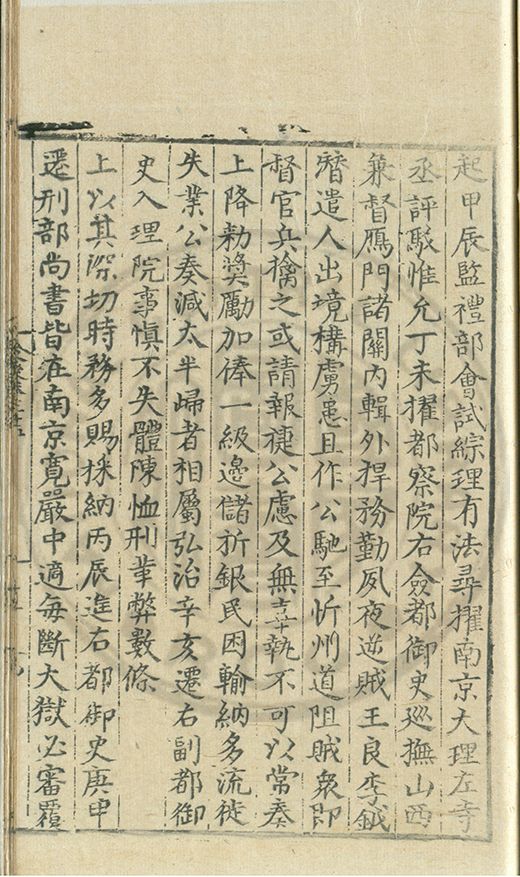 起甲辰監禮部會試綜理有法尋擢南京大理左寺
丞評駁惟允丁未擢都察院右僉都御史巡撫山西
兼督鴈門諸關內輯外捍務勤夙夜逆賊王良李鉞
朁遣人出境構虜患且作公馳至忻州道阻賊衆即
督官兵擒之或請報捷公慮及無辜執不可以常奏
上降勑奬勵加俸一級邊儲折銀民困輸納多流徙
失業公奏減太半歸者相屬弘治辛亥遷右副都御
史入理院事慎不失體陳恤刑革弊數條
上以其深切時務多賜採納丙辰進右都御史庚申
遷刑部尚書皆在南京寬嚴中適每斷大獄必審覆